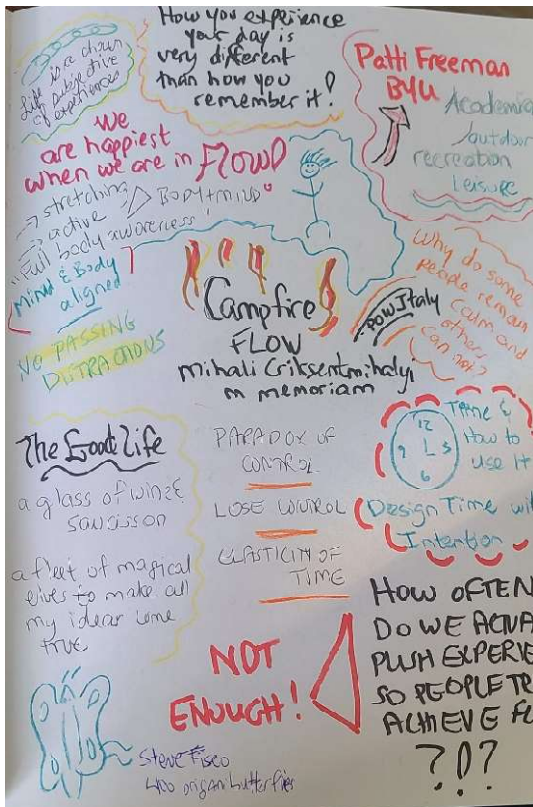 Life is a chain
of subjective
experiences
How you experience
your day is
very different
than how you
remember it!
Patti Freeman
BYU
Academia
outdoor
recreation
Leisure
We
are happiest
when we are in FLOW
stretching
active
Body + mind
Full body awareness!
Mind & Body
aligned
NO PASSING
DISTRACTIONS
Campfire
FLOW
mihali Criksentmihalyi
in memoriam
POW Italy
Why do some
people remain
calm and
others
can not?
The Good Life
a glass of wine &
saucisson
a fleet of magical
elves to make all
my ideas come
true.
PARADOX OF
CONTROL
LOSE CONTROL
ELASTICITY OF
TIME
12
9 3
6
TIME &
How to
use It
Design Time wi
Intention
NOT
ENOUGH!
HOW OFTEN
DO WE ACTUA
PUSH EXPERIE
SO PEOPLE TR
ACHIEVE FL
???
Steve Fisco
400 origami butterflies